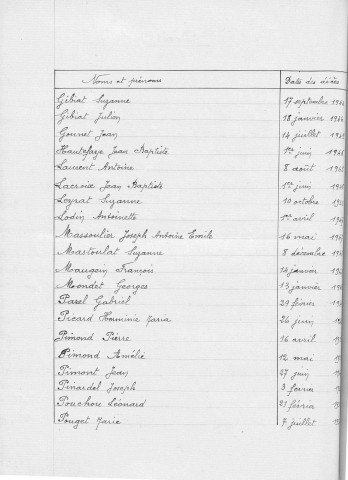 Noms et prénoms Dates des décès
Gibiat Suzanne 17 septembre 194
Gibiat Julien 18 janvier 194
Gounet Jean 14 juillet 194
Hautefaye Jean Baptiste 1er juin 194
Laurent Antoine 8 août 194
Lacroix Jean Baptiste 1er juin 194
Leyrat Suzanne 10 octobre 19
Lodin Antoinette 1er avril 194
Massoulier Joseph Antoine Emile 16 mai 19
Mastoulat Suzanne 8 décembre 19
Maugein François 14 janvier 19
Mondet Georges 13 janvier 19
Parel Gabriel 29 février 19
Picard Herminie Maria 26 juin 19
Pimond Pierre 16 avril 19
Pimond Amélie 12 mai 19
Pimont Jean 27 juin 19
Pinardel Joseph 3 février 19
Pouchou Léonard 21 février 19
Pouget Marie 7 juillet 19